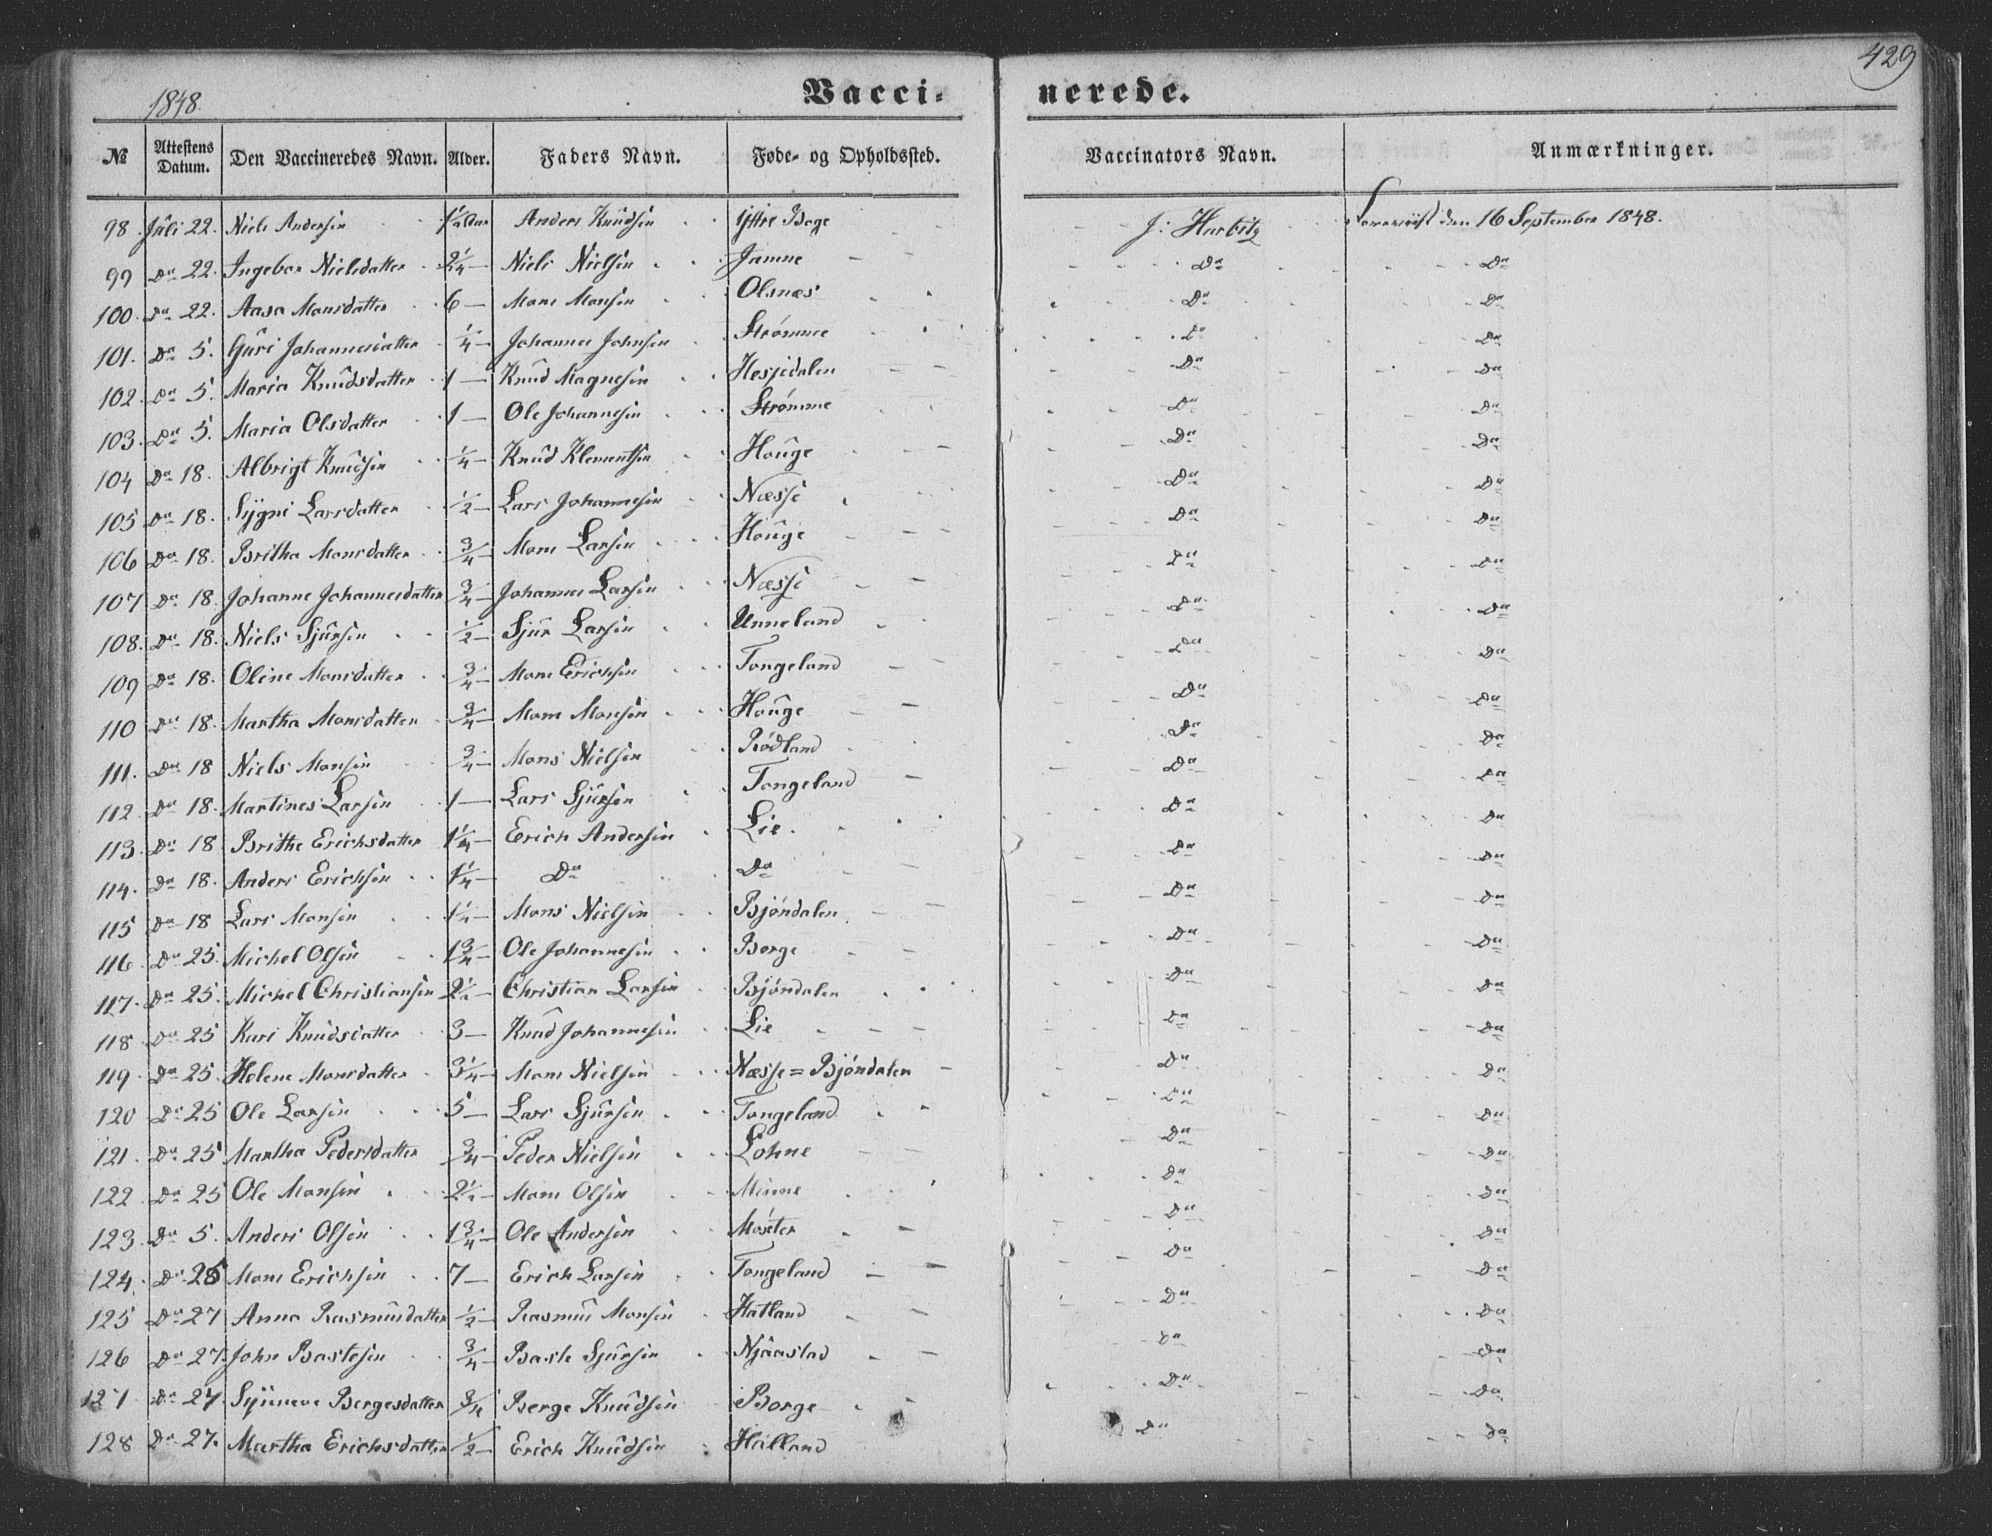 429
1848.
Vacci- nerede.
№ Attestens Datum. Den Vaccineredes Navn. Alder. Faders Navn. Føde- og Opholdssted. Vaccinators Navn. Anmærkninger.
98. Juli 22. Niels Andersen 1 1/2 Aar Anders Knudsen Yttre Bøge J: Harbitz Foreviist den 16 September 1848.
99 Do 22. Ingebor Nielsdatter 2 1/4 — Niels Nielsen Jamne Do Do
100. Do 22. Aasa Monsdatter 6 — Mons Monsen Olsnæs Do Do
101. Do 5. Guri Johannesdatter 1/4 — Johannes Johnsen Strømme Do Do
102. Do 5. Maria Knudsdatter 1 — Knud Magnesen Hesjedalen Do Do
103. Do 5. Maria Olsdatter 1 — Ole Johannesen Strømme Do Do
104 Do 18. Albrigt Knudsen 1/4 — Knud Klementsen Houge Do Do
105 Do 18. Sygni Larsdatter 1/2 — Lars Johannesen Næsse Do Do
106 Do 18. Britha Monsdatter 3/4 — Mons Larsen Houge Do Do
107 Do 18. Johanne Johannesdatter 3/4 — Johannes Larsen Næsse Do Do
108. Do 18. Niels Sjursen 1/2 — Sjur Larsen Unneland Do Do
109 Do 18. Oline Monsdatter 3/4 — Mons Ericksen Tongeland Do Do
110 Do 18. Martha Monsdatter 3/4 — Mons Monsen Houge Do Do
111. Do 18 Niels Monsen 3/4 — Mons Nielsen Rødland Do Do
112 Do 18. Martines Larsen 1 — Lars Sjursen Tongeland Do Do
113. Do 18 Brithe Erichsdatter 1 1/4 — Erich Andersen Lie. Do Do
114. Do 18. Anders Erichsen 1 1/4 — Do Do Do Do
115 Do 18 Lars Monsen 1 1/4 — Mons Nielsen Bjöndalen Do Do
116 Do 25. Michel Olsen 1 3/4 — Ole Johannesen Borge Do Do
117. Do 25. Michel Christiansen 2 1/2 — Christian Larsen Bjöndalen Do Do
118 Do 25 Kari Knudsdatter 3 — Knud Johannesen Lie Do Do
119 Do 25. Helene Monsdatter 3 1/4 — Mons Nielsen Næsse = Bjöndalen Do Do
120 Do 25 Ole Larsen 5 — Lars Sjursen Tongeland Do Do
121. Do 25 Martha Pedersdatter 3/4 — Peder Nielsen Lohne Do Do
122 Do 25 Ole Monsen 2 1/2 — Mons Olsen Minne Do Do
123. Do 5. Anders Olsen 1 3/4 — Ole Andersen Moster Do Do
124. Do 25 Mons Erichsen 7 — Erich Larsen Tongeland Do Do
125 Do 27 Anna Rasmusdatter 1/2 — Rasmus Monsen Hatland Do Do
126 Do 27. John Bastesen 3/4 — Baste Sjursen Njåastad Do Do
127 Do 27 Synneve Bergesdatter 3/4 Berge Knudsen Borge Do Do
128 Do 27. Martha Erichsdatter 1/2 — Erich Knudsen Halland Do Do